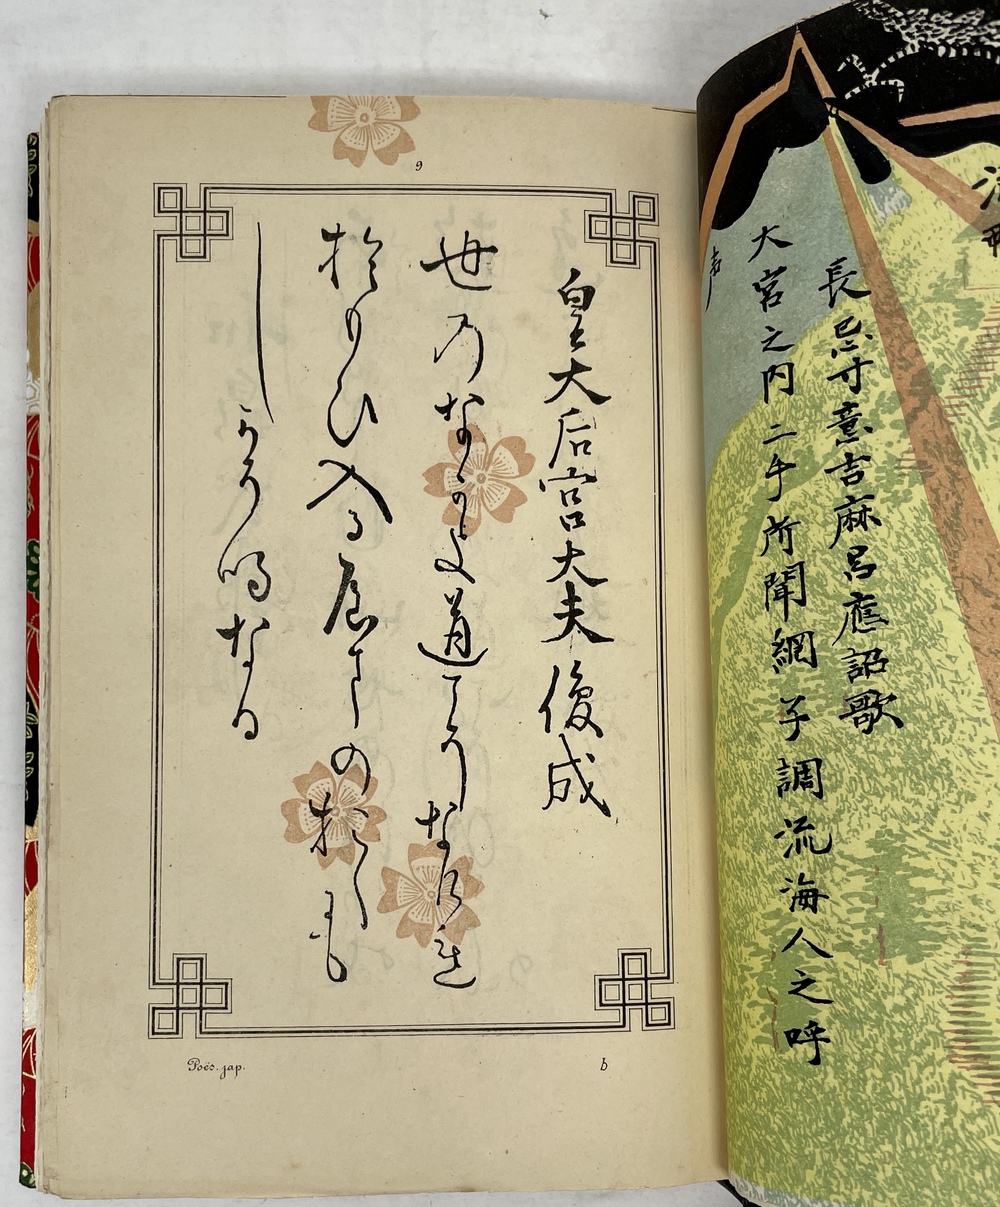 長忌寸意吉麻呂應詔歌
大宮之内二手所聞網子調流海人之呼
声
9
皇大后宮大夫俊成
世乃なかよ道こそなけれ
おもひ入るやまのおくにも
しかそ鳴なる
Poës. jap.
b